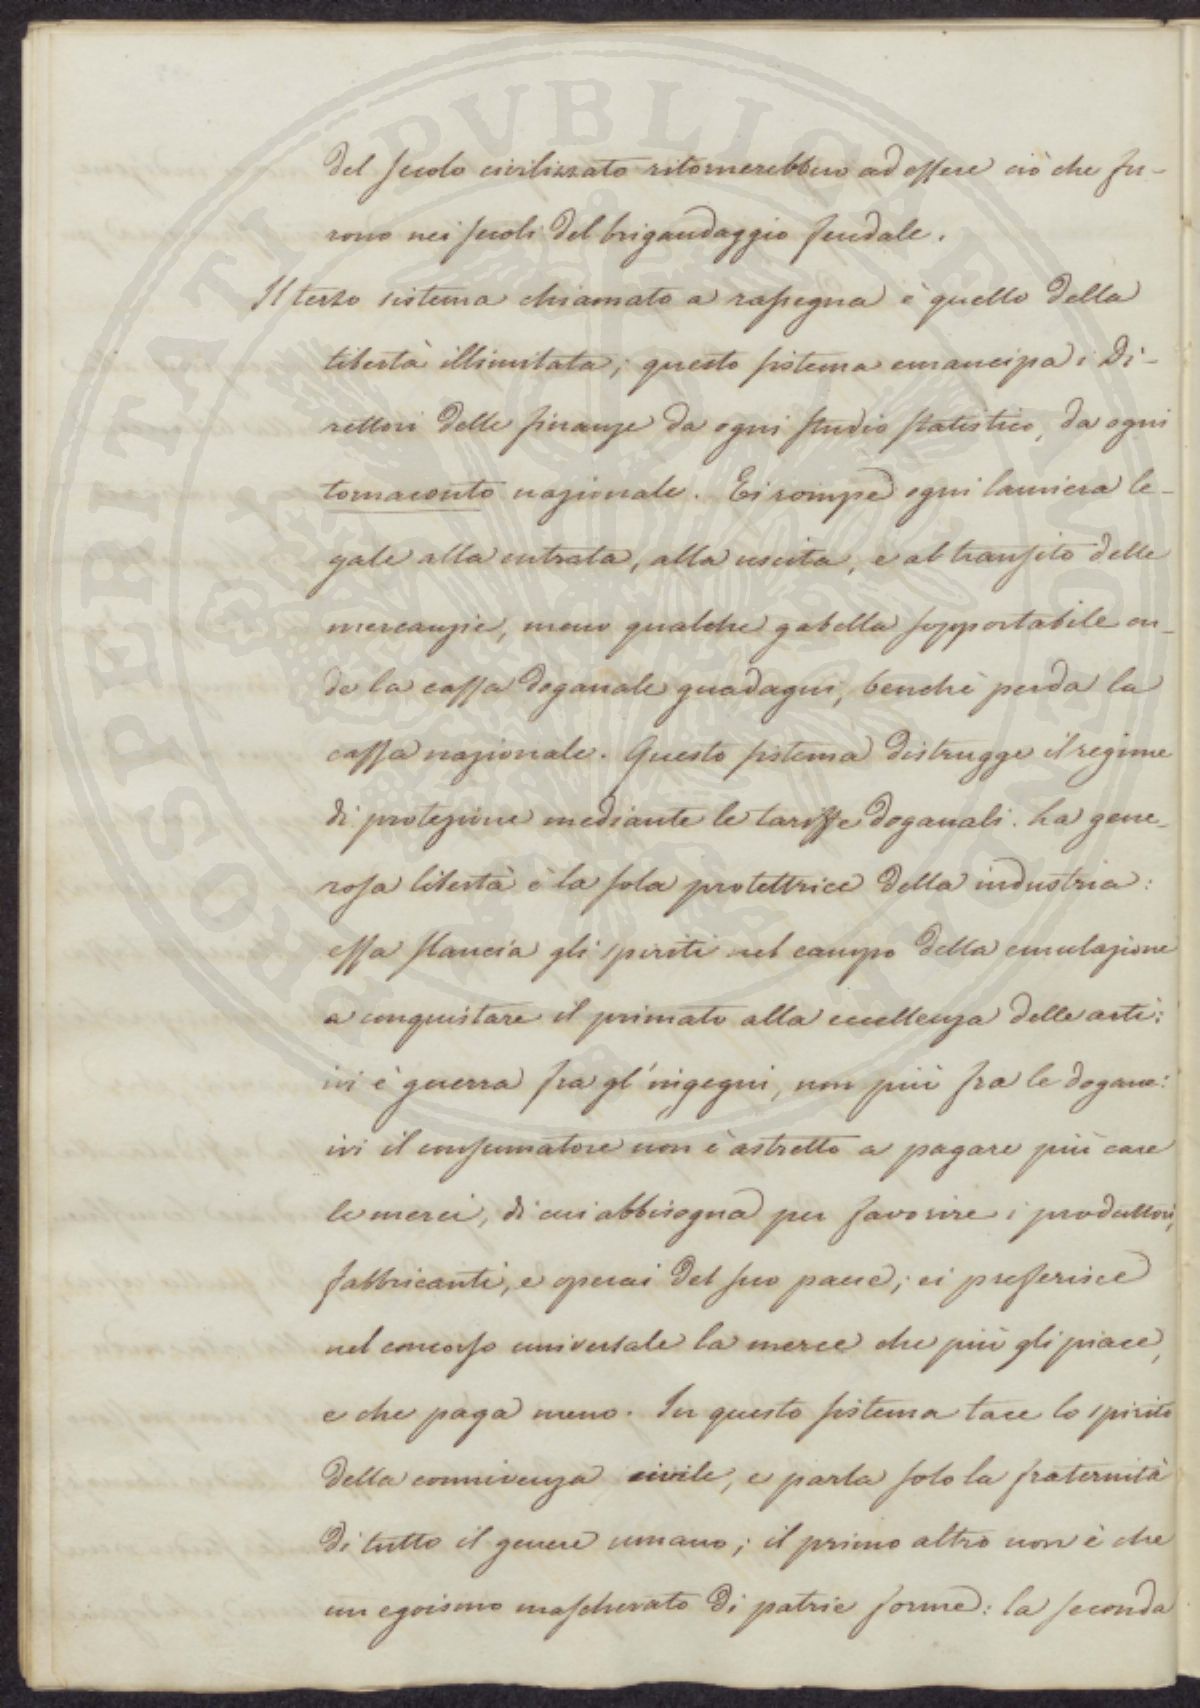 del secolo civilizzato ritornerebbero ad essere ciò che fu-
rono nei secoli del brigandaggio feudale.
Il terzo sistema chiamato a rassegna è quello della
libertà illimitata; questo sistema emancipa i Di-
rettori delle finanze da ogni studio statistico, da ogni
tornaconto nazionale. Ei rompe ogni barriera le-
gale alla entrata, alla uscita, e al transito delle
mercanzie, meno qualche gabella sopportabile on-
de la cassa doganale guadagni, benchè perda la
cassa nazionale. Questo sistema distrugge il regime
di protezione mediante le tariffe doganali. La gene-
rosa libertà è la sola protettrice della industria:
essa slancia gli spiriti nel campo della emulazione
a conquistare il primato alla eccellenza delle arti:
ivi è guerra fra gl'ingegni, non più fra le dogane:
ivi il consumatore non è astretto a pagare più care
le merci, di cui abbisogna per favorire i produttori,
fabbricanti, e operai del suo paese; ei preferisce
nel concorso universale la merce che più gli piace,
e che paga meno. In questo sistema tace lo spirito
della connivenza civile, e parla solo la fraternità
di tutto il genere umano; il primo altro non è che
un egoismo mascherato di patrie forme: la seconda
PROSPERITATI PUBLICAE